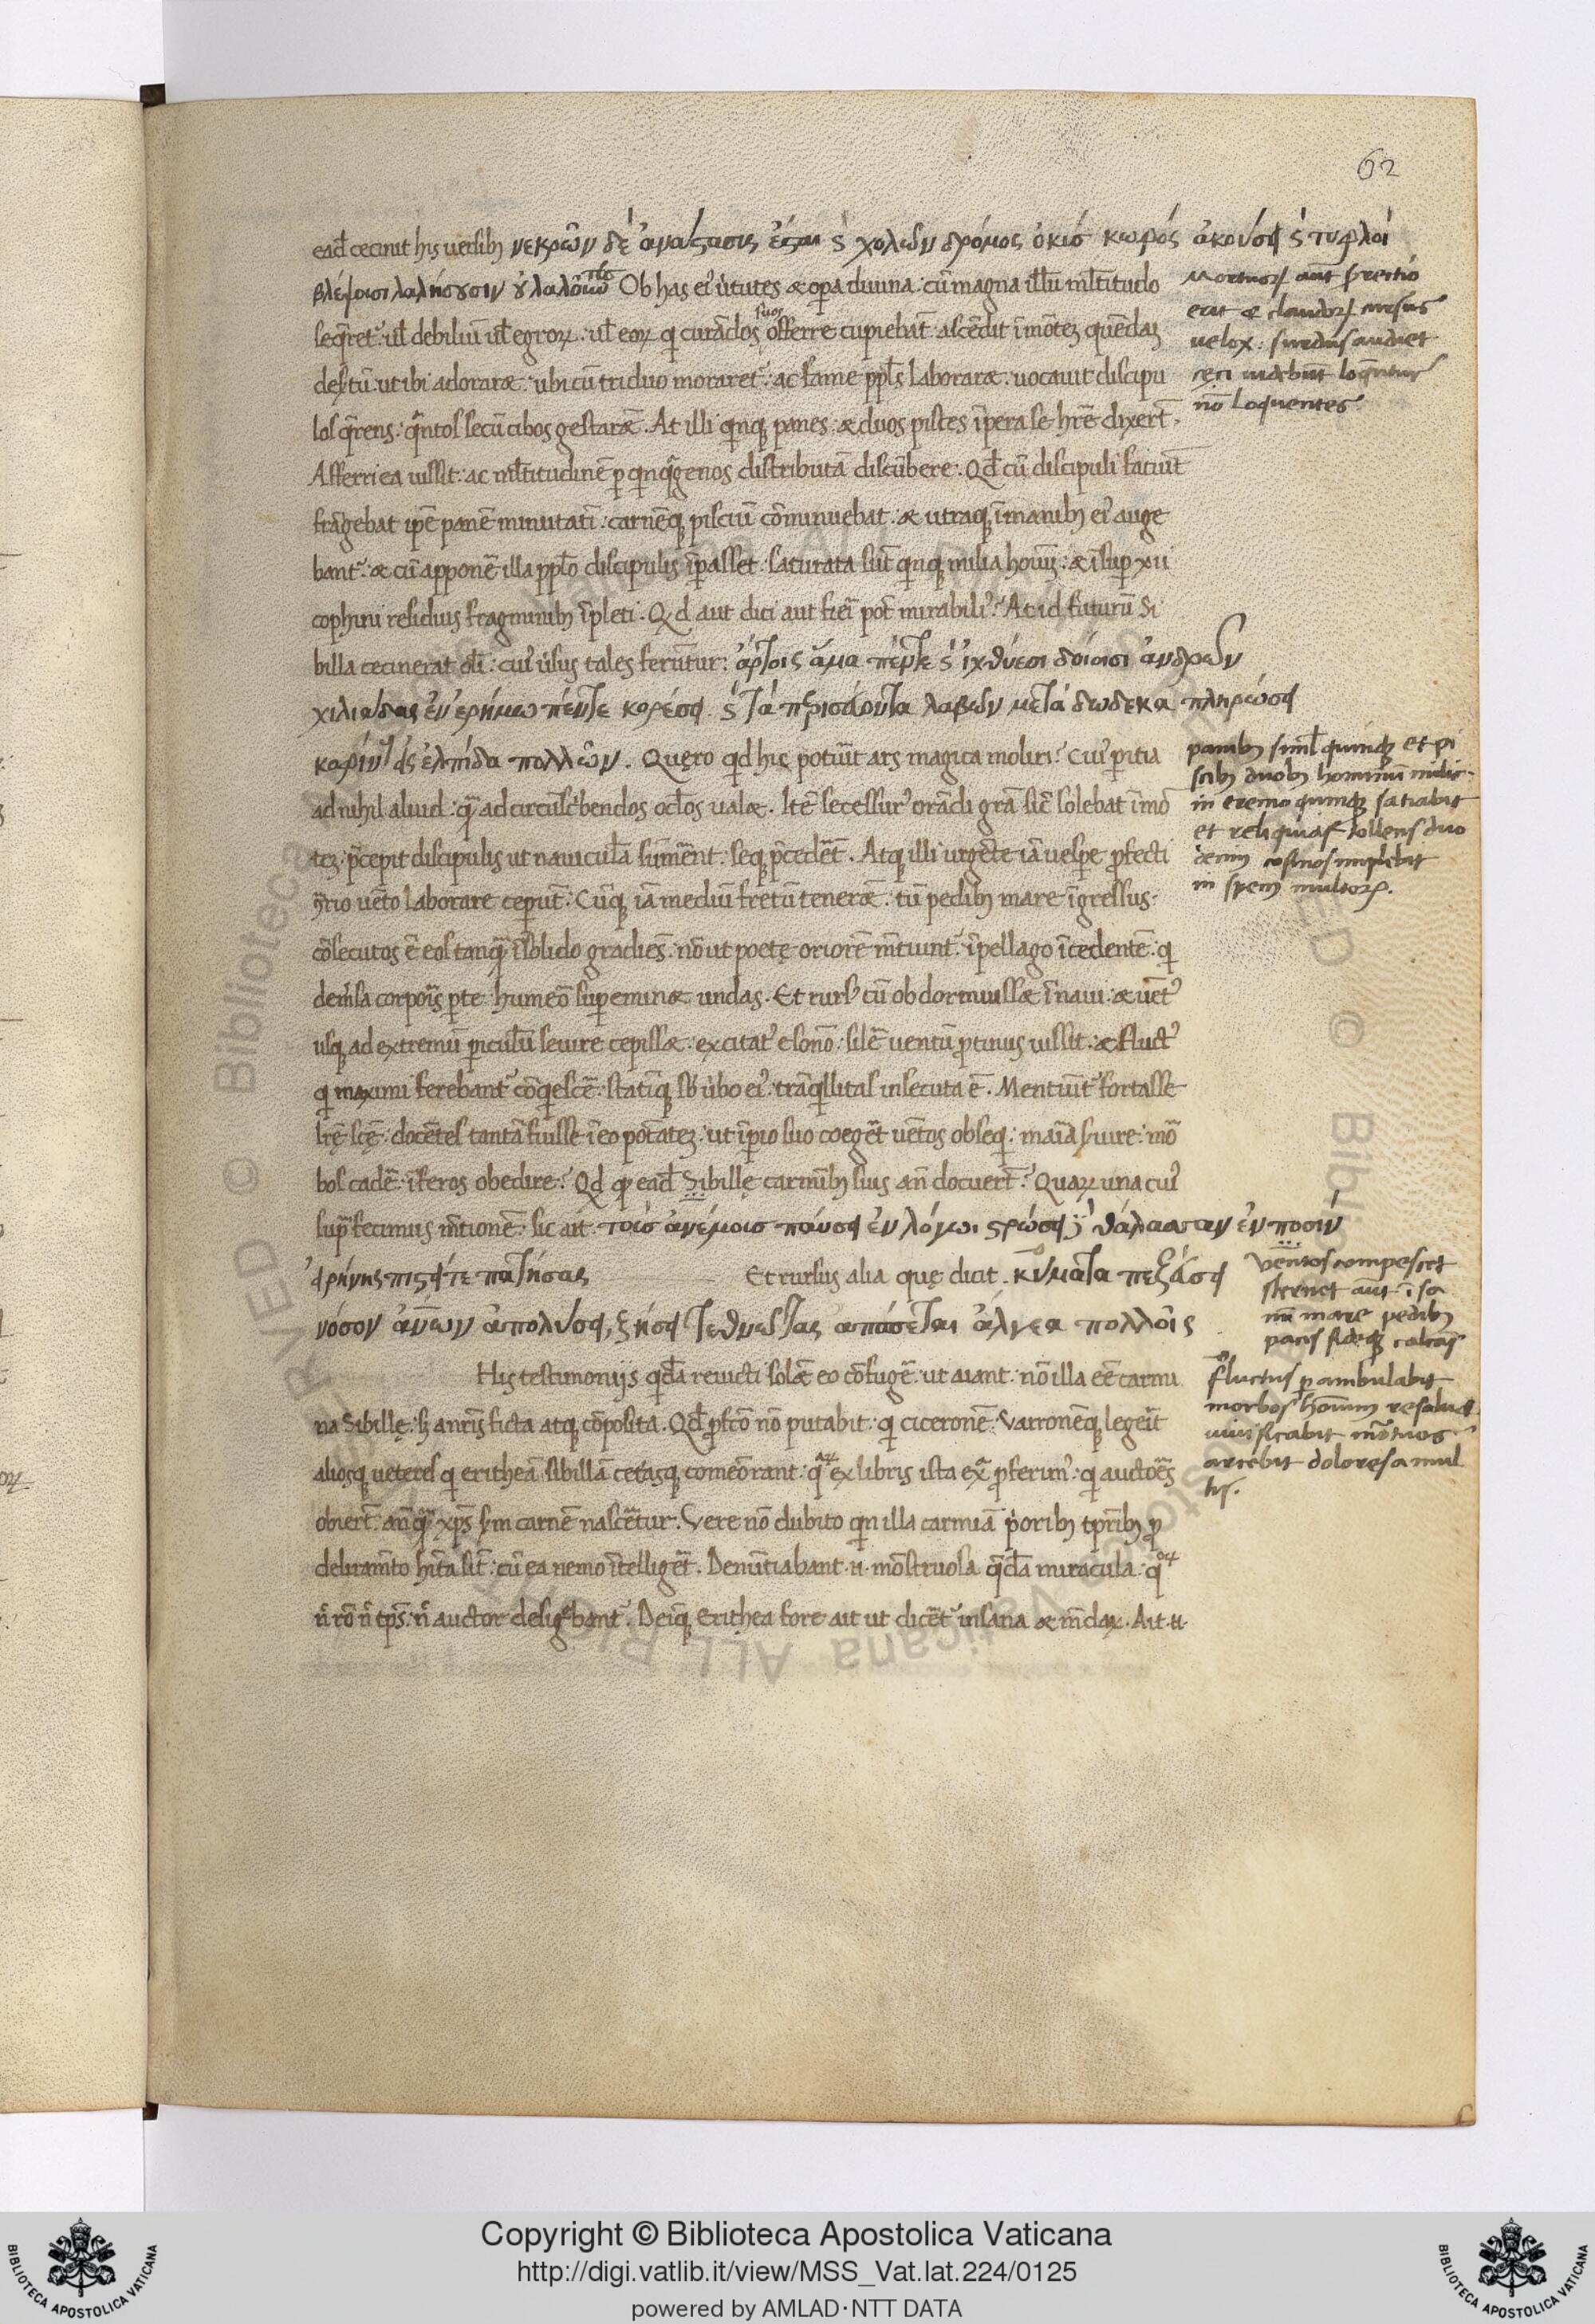 62
ead̄ cecinit his uersib; νεκρῶν δὲ ἀνάϛασις ἔϛαι ϛ̀ χολῶν δρόμος ὀκισ κωφός ἀκούσει ϛ̀ τυφλοὶ
βλέψοισι λαλήσουσιν οὐ λαλο Ob has ei᾽ uirtutes & opera diuina: cū magna illū ml̄titudo
seq̄ret᾽: ul̄ debiliū ul̄ egroꝝ: ul̄ eoꝝ qi curādos suos offerre cupiebāt: ascēdit ī mōtez quēdaz
des̄tū: ut ibi adoraræ: ubi cū triduo moraret᾽: ac fame ppl̄s laboraræ: uocauit discipu
los q̄rens: q̄ntos secū cibos gestarǣ. At illi qinq; panes: & duos pisces ī pera se hr̄e dixert̄.
Afferri ea iussit: ac ml̄titudinē p qinq̄genos distributā discūbere. Qd̄ cū discipuli faciūt
frāgebat ipē panē minutati: carnēq; pisciū cōminuebat: & utraq; ī manib; ei᾽ auge
bant᾽: & cū apponē illa ppl̄o discipulis īpasset: saturata sūt qinq; milia hoīuz: & īsup xii
cophini residuis fragminib; īpleti. Qd aut dici aut fieri pōt mirabili᾽? At id futurū Si
billa cecinerat oli: cui᾽ uersus tales ferūtur: ἄρτοις ἅμα πέντε ϛ̀ ἰχθύεσι δοίοισι ἀνδρῶν
χιλιάδας ἐν ἐρήμω πέντε κορέσει ϛ̀ τὰ περισσάοντα λαβὼν μετά δώδεκα πληρώσει
κοφίν εἰς ἐλπίδα πολλῶν. Quęro qid hic potuīt ars magica moliri? Cui᾽ pitia
ad nihil aliud: q̄ ad circūscbendos ocl̄os ualæ. Itē secessur᾽ orādi grā sic̄ solebat ī mō
tez: p̄cepit discipulis ut nauiculā sumēnt: seq; p̄cedēt. Atq; illi urgēte iā uespe pfecti
9rio uēto laborare ceput̄. Cūq; iā mediū fretū tenerǣ: tū pedib; mare īgressus.
cōsecutos ē eos tanq̄ ī solido gradiēs: nō ut poetę orionē mētiunt᾽: ī pellago īcedentē: qi
demsa corpois pte humeō supeminæ undas. Et rurs᾽ cū obdormiuissæ ī naui: & uēt᾽
usq; ad extremū piculū seuire cepissæ: excitat᾽ e sōno: silē uentū ptinus iussit: & fluct᾽
qi maximi ferebant᾽ cōqiescē: statīq; sb uerbo ei᾽: trāqillitas insecuta ē. Mentiunt᾽ fortasse
lr̄ę scę̄: docētes tantā fuisse ī eo potātez: ut īpio suo coegēt uētos obseq: maīa suire: mō
bos cadē: īferos obedire? Qd qp ead̄ Sibillę carmīb; suis an̄ docuert̄? Quaꝝ una cui᾽
sup̄ fecimus m̄tionē: sic ait. τοῖσ ἀνέμοισ παύσει ἐν λόγωι ϛρώσει δὲ θάλασσαν ἐν ποσὶν
εἰρήνης πίϛει τε πατήσας Et rursus alia quę dicit. κύματα πεζάσει
νόσον ἀν̄ων ἀπολύσει, ξήσει τεθνῶτας ἀπώσεται ἄλγεα πολλοῖς
His testimoniis qidā reuicti solǣ eo cōfugē: ut aiant: nō illa eē carmi
na Sibillę: s; a nris ficta atq; cōposita. Qd̄ pfco nō putabit: qi ciceronē: Varronēq; legeit
aliosq; ueteres qi eritheā sibillā ceterasq; comēorant: q̄ꝝ ex libris ista exa pferim᾽: qi auctoēs
obiert̄: anq̄ xp̄s s̄m carnē nascētur. Vere nō dubito qin illa carmīa prioribus tp̄rib; p
deliramto hita sit̄: cū ea nemo ītelligēt. Denūtiabant .n. mōstruosa qidā miracula: qoꝝ
n̄ rō n̄ tps̄: n̄ auctor desigbant᾽. Deiq; Erithea fore ait ut dicēt᾽ insana & m̄dax. Ait .n.
Mortuoꝝ aūt surectio
erit & claudoꝝ cursus
uelox: surdus audiet
cęci uidebūt loquntur
nō loquentes
panib; siml̄ quinq; et pi
scib; duob; hominū milia
in eremo quinq; satiabit
et reliquias tollens duo
decim cofinos implebit
in spem multoꝝ.
Ventos compescet
sternet aūt ī sa
nū mare pedib;
pacis fideq; calcās
Fluctus pambulabit
morbos hoīum resoluet
uiuificabit mōtuos
arcebit dolores a mul
tis.
Copyright © Biblioteca Apostolica Vaticana
http://digi.vatlib.it/view/MSS_Vat.lat.224/0125
powered by AMLAD·NTT DATA
BIBLIOTECA APOSTOLICA VATICANA
BIBLIOTECA APOSTOLICA VATICANA